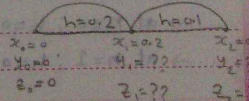 h=0.2 h=0.1
x₀=0 x₁=0.2 x₂=
y₀=0 y₁=?? y₂=
z₀=0 z₁=?? z₂=